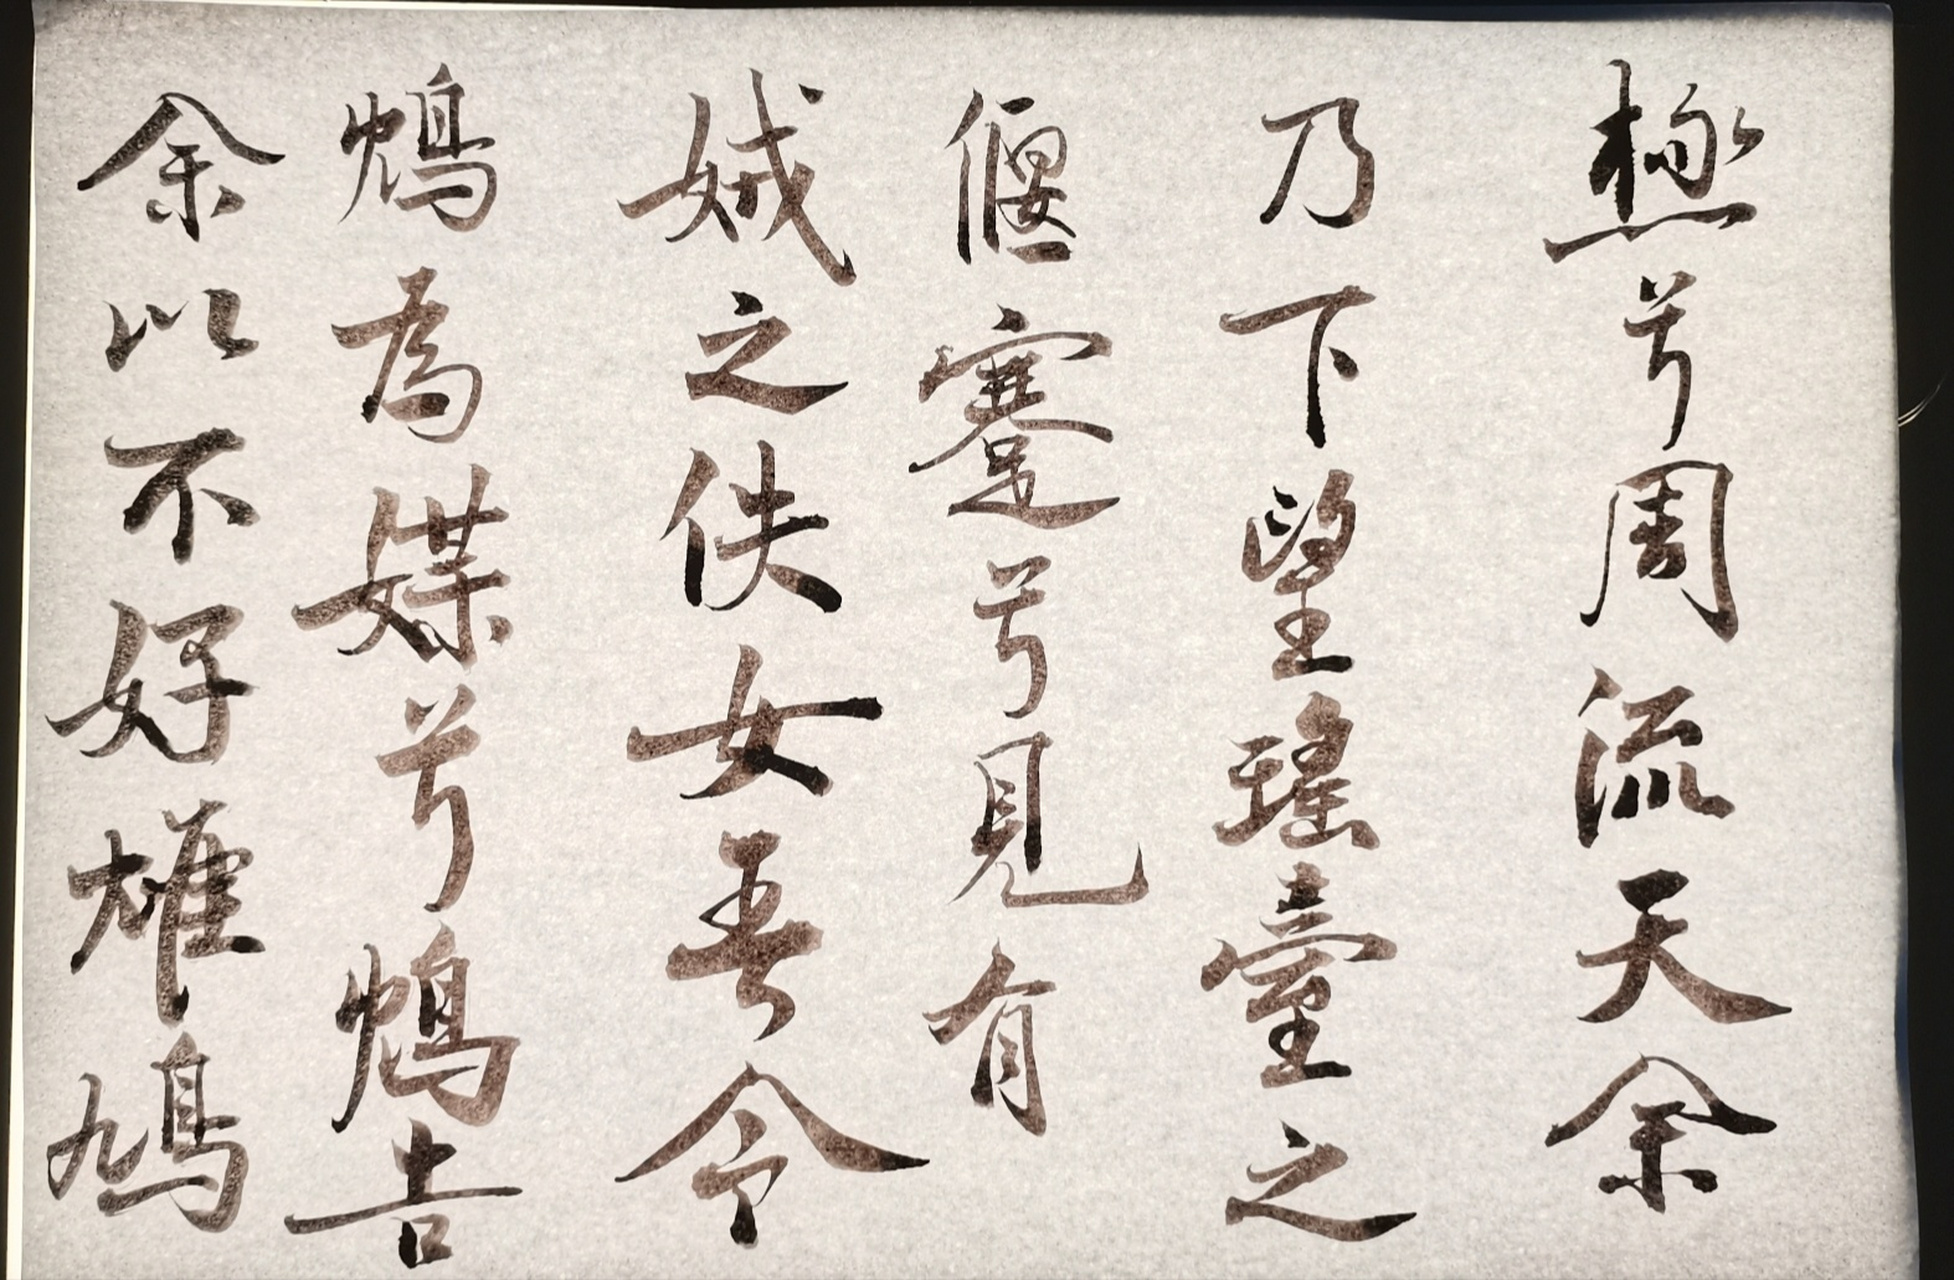 極兮周流天余
乃下望瑤臺之
偃蹇兮見有
娀之佚女吾令
鴆為媒兮鴆告
余以不好雄鳩